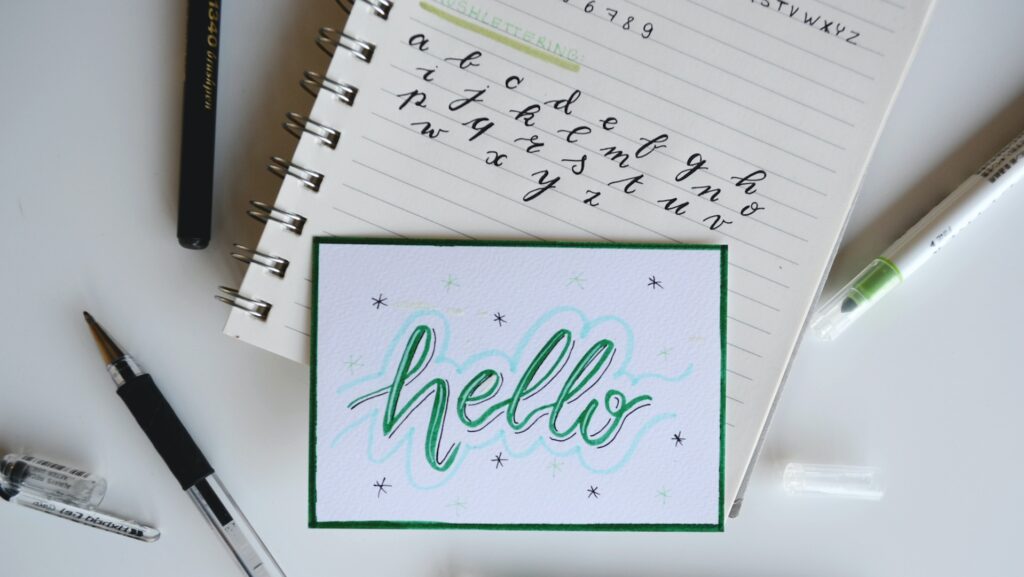 6 7 8 9
STVWXYZ
USHLETTERING:
a b c d e f g h
i j k l m n o
p q r s t u v
w x y z
hello
brushpen